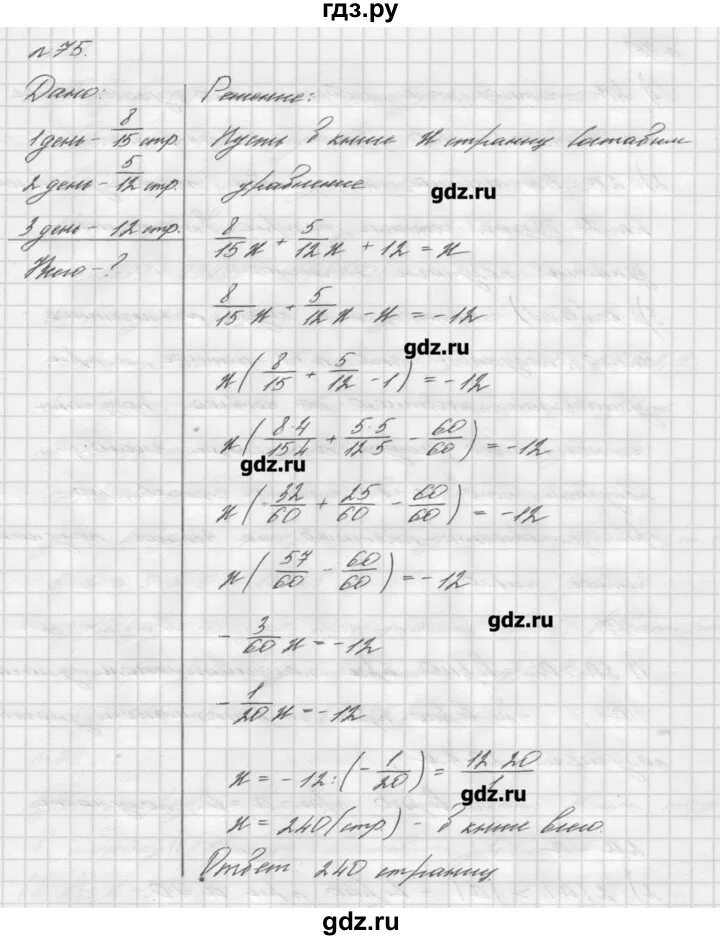 гдз.ру
№75.
Дано:
1 день – 8/15 стр.
2 день – 5/12 стр.
3 день – 12 стр.
Всего – ?
Решение:
Пусть в книге x страниц составим
уравнение
gdz.ru
8/15 x + 5/12 x + 12 = x
8/15 x + 5/12 x – x = –12
gdz.ru
x ( 8/15 + 5/12 – 1 ) = –12
x ( 8·4/15·4 + 5·5/12·5 – 60/60 ) = –12
gdz.ru
x ( 32/60 + 25/60 – 60/60 ) = –12
x ( 57/60 – 60/60 ) = –12
gdz.ru
– 3/60 x = –12
– 1/20 x = –12
x = –12 : ( – 1/20 ) = 12 20/1
gdz.ru
x = 240 (стр.) – в книге всего.
Ответ 240 страниц.
gdz.ru